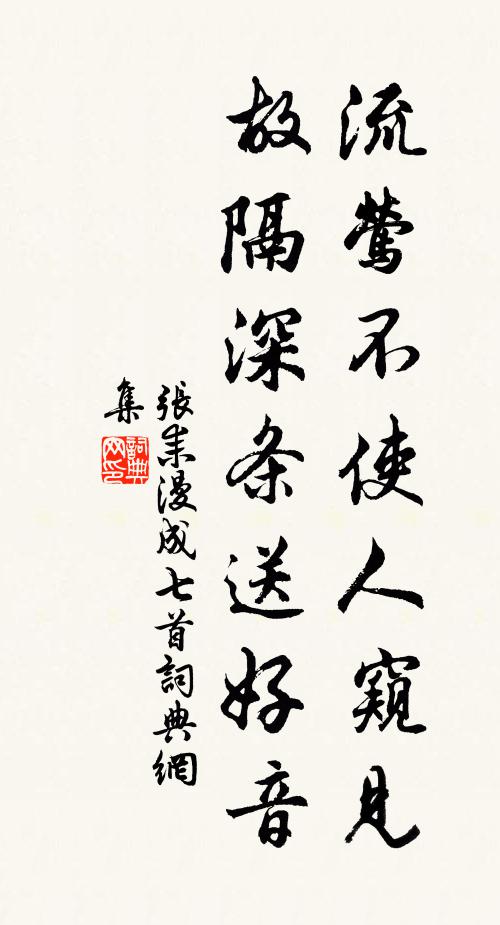 流莺不使人窥見
故隔深条送好音
張耒漫成七首詞典網
集
詞典
网印